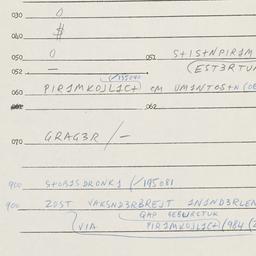 030 0
040 $
050 0 051 S+IS+NPIRIM
052 — (ESTERTU
(/195081
060 PIRIMKOJLIC+ EM UMINTOS+N (OE
062
070 GRAG3R/—
900 S+OBIS DRONKI (/195081
900 ZOST VAKSND3RBREJT ININD3RLEN
GAP
VIA PIRIMKOJLIC+ (984 (2